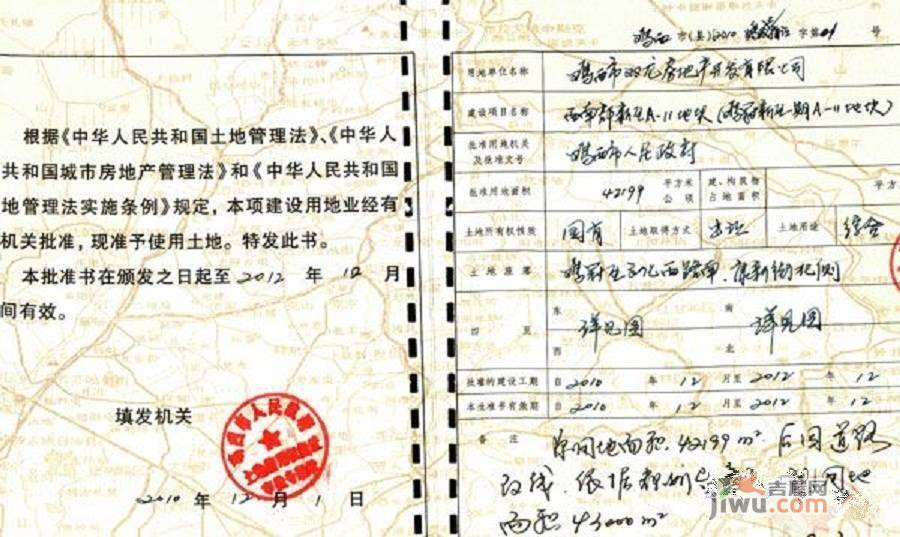 根据《中华人民共和国土地管理法》、《中华人
共和国城市房地产管理法》和《中华人民共和国
地管理法实施条例》规定，本项建设用地业经有
机关批准，现准予使用土地。特发此书。
本批准书在颁发之日起至2012年12月
间有效。
填发机关
鸡西市人民政府
2010年12月1日
鸡西市(县)(2010 字第01号
用地单位名称 鸡西市双龙房地产开发有限公司
建设项目名称 西南部新区A-11地块(鸡冠新区一期A-11地块)
批准用地机关及批准文号 鸡西市人民政府
批准用地面积 42199 平方米 公顷 建、构筑物占地面积 平方 公
土地所有权性质 国有 土地取得方式 出让 土地用途 综合
土地座落 鸡冠区 西路南、康新街北侧
四至 东 详见图 南 详见图
西 北
批准的建设工期 自2010年12月至2012年12
本批准书有效期 自2010年12月至2012年12
备注 原用地面积42199m² 后因道路
改线.依据规划 用地
面积43000m²
吉屋网
jiwu.com